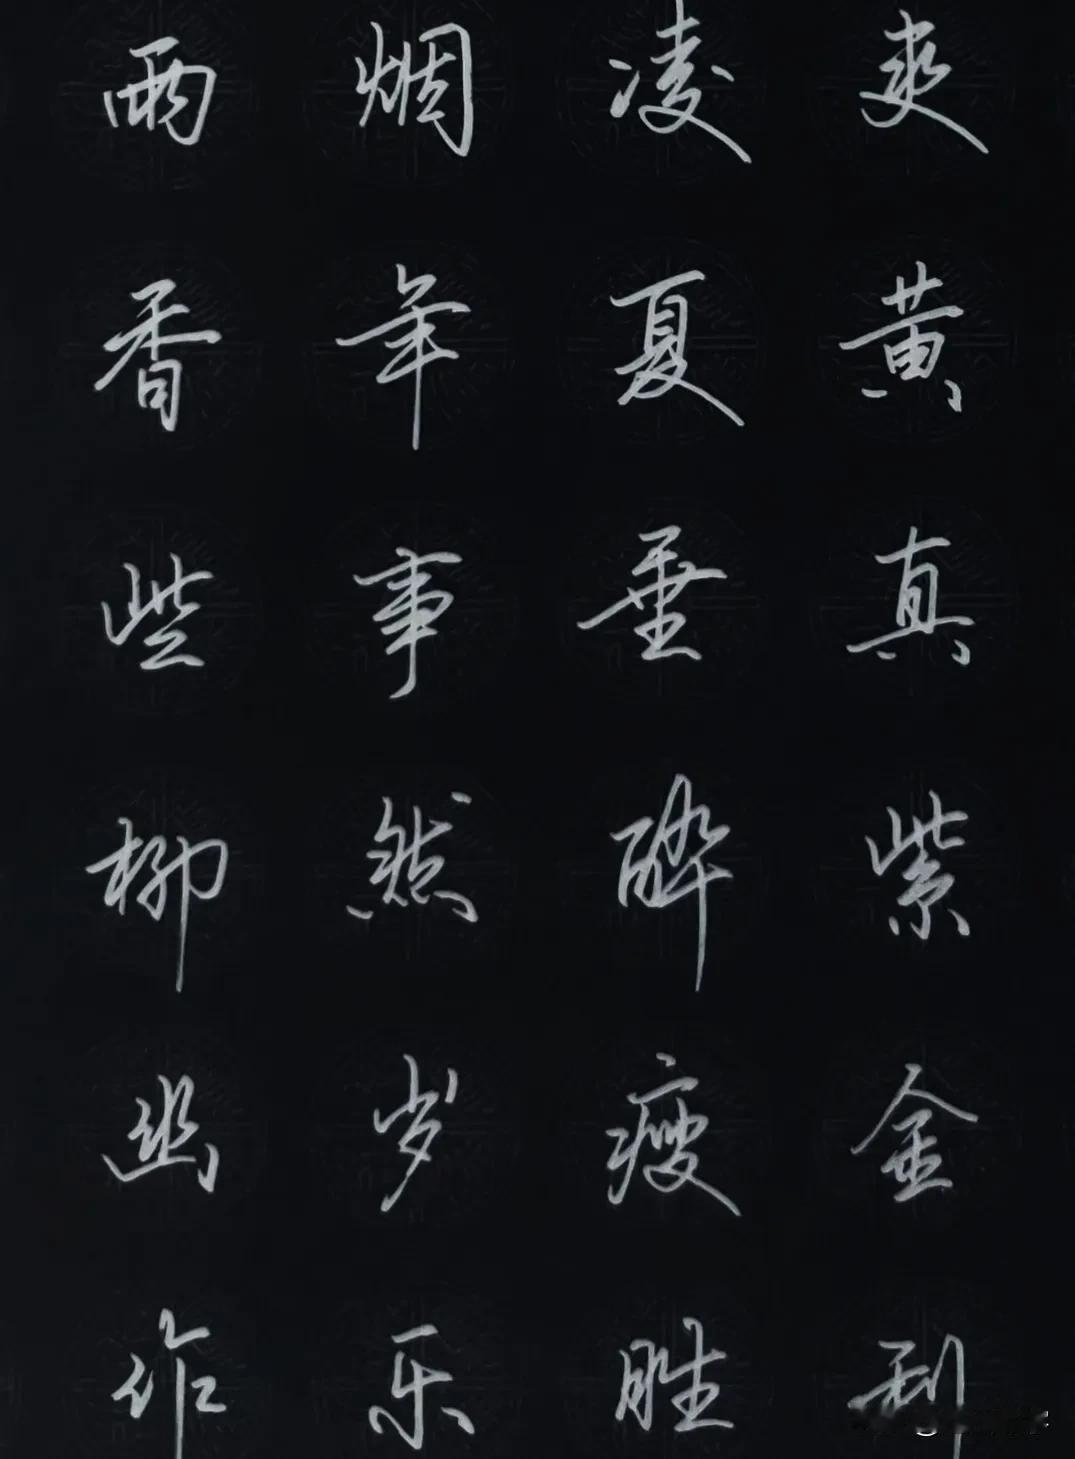 雨烟凌爽
香年夏黄
些事垂真
柳然醉紫
幽岁瘦金
作乐胜利